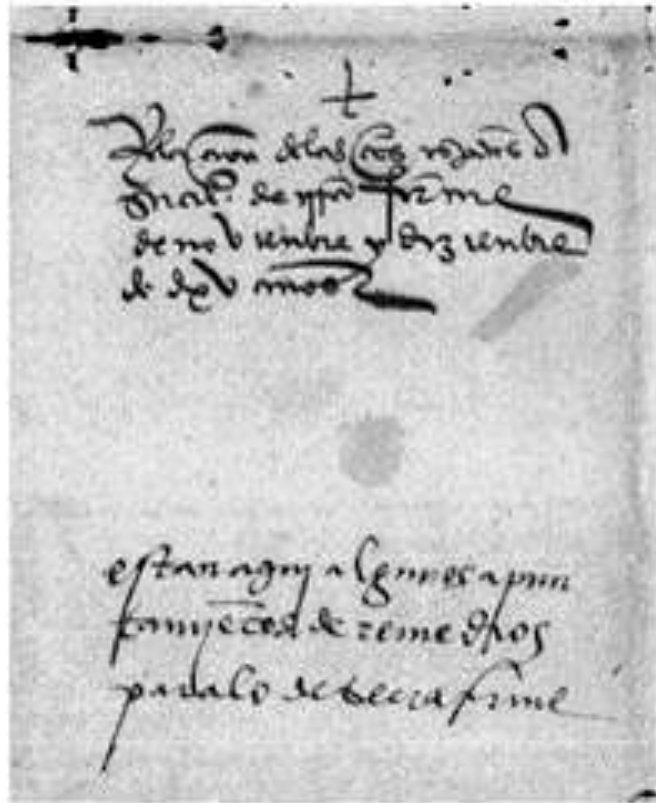 Relaçion de las
de tierra firme
de novienbre y dizienbre
de dxv años
estan aquy algunos apun
tamyētos de remedios
para lo de tierra firme